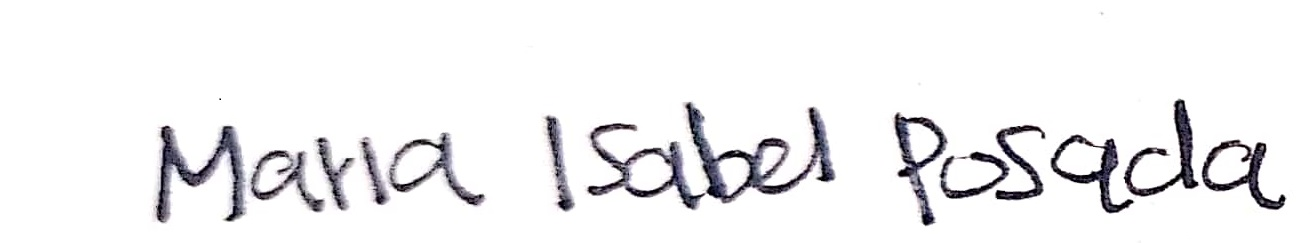 Maria Isabel Posada